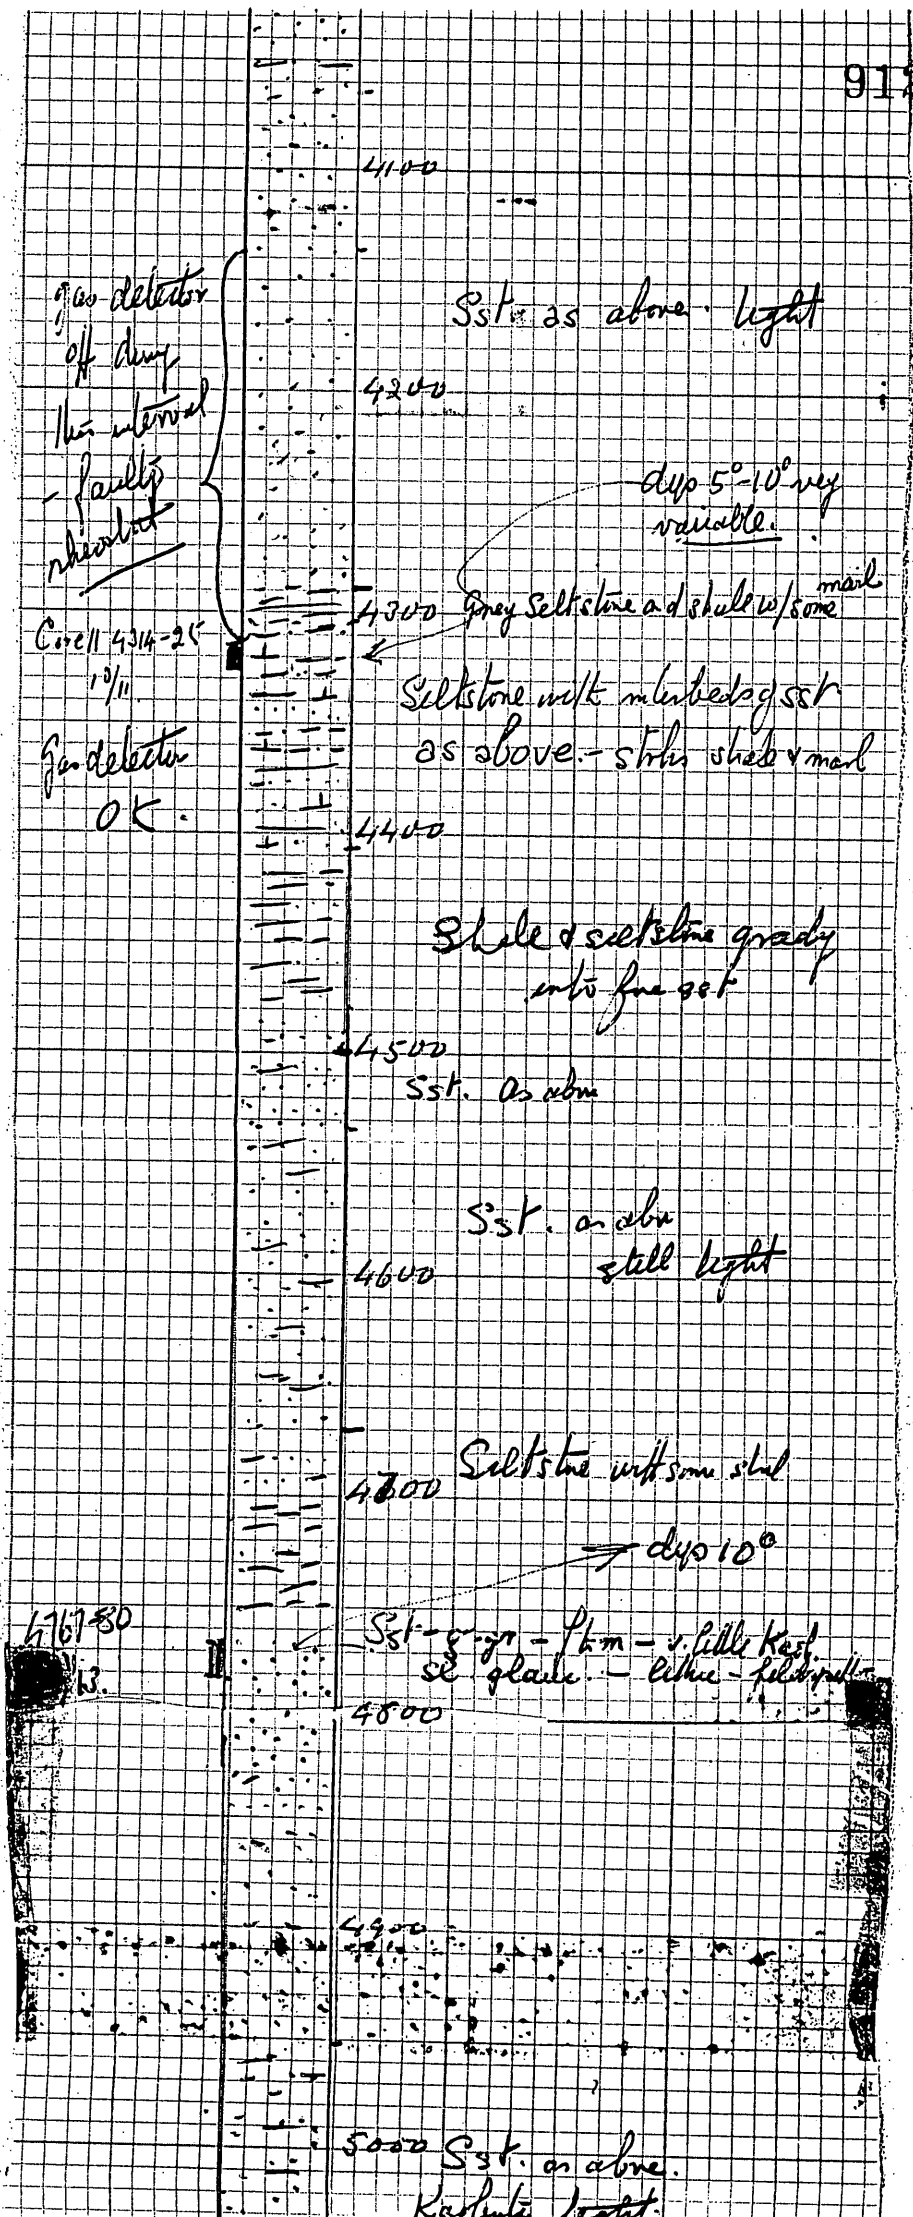 912
4100
gas detector
off during
this interval
- faulty
rheostat
Sst. as above. tight
4200
dip 5°-10° very
variable.
4300 Grey Siltstone and shale w/ some marl
Core 11 4314-25
10/11
Siltstone with interbeds of sst
as above - strks shale & marl
Gas detector
OK.
4400
Shale & siltstone gradg
into fine sst
4500
Sst. as abv
Sst. as abv
still tight
4600
Siltstone with some shal
4700
dip 10°
4767-80
Sst - g-gr - f to m - v. little Kaol
sl glauc - lithic - feldspath
13.
4800
4900
5000 Sst. as above.
Kaolinitic tight.